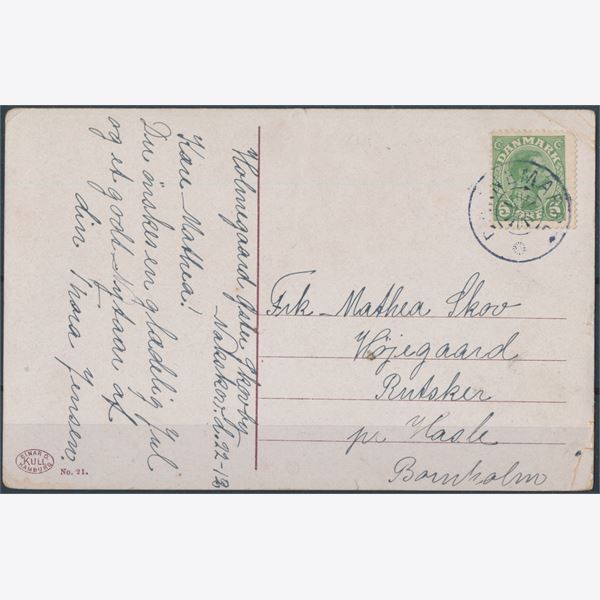 Holmegaard Øster Skovby
Nakskov. d. 22-12
Kære Mathea!
Du ønskes en glædelig Jul
og et godt Nytaar af
din Thora Jensen.
DANMARK
ØRE
Frk. Mathea Skov
Højegaard
Rutsker
pr Hasle
Bornholm
EINAR O.
KULI
HAMBURG
No. 21.